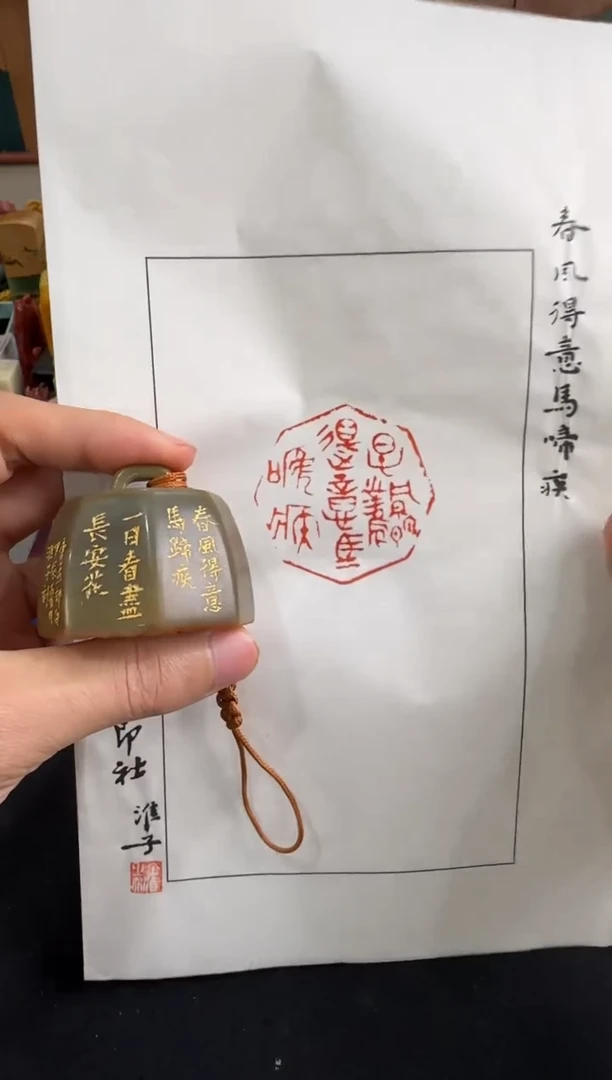 春風得意馬啼疾
春風
得意馬
啼疾
春風得意
馬蹄疾
一日看盡
長安花
印社
淮子